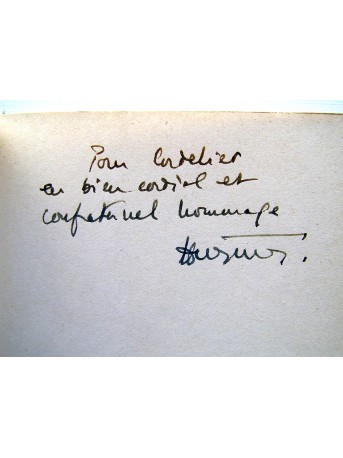 Pour Cordelier
en bien cordial et
confraternel hommage